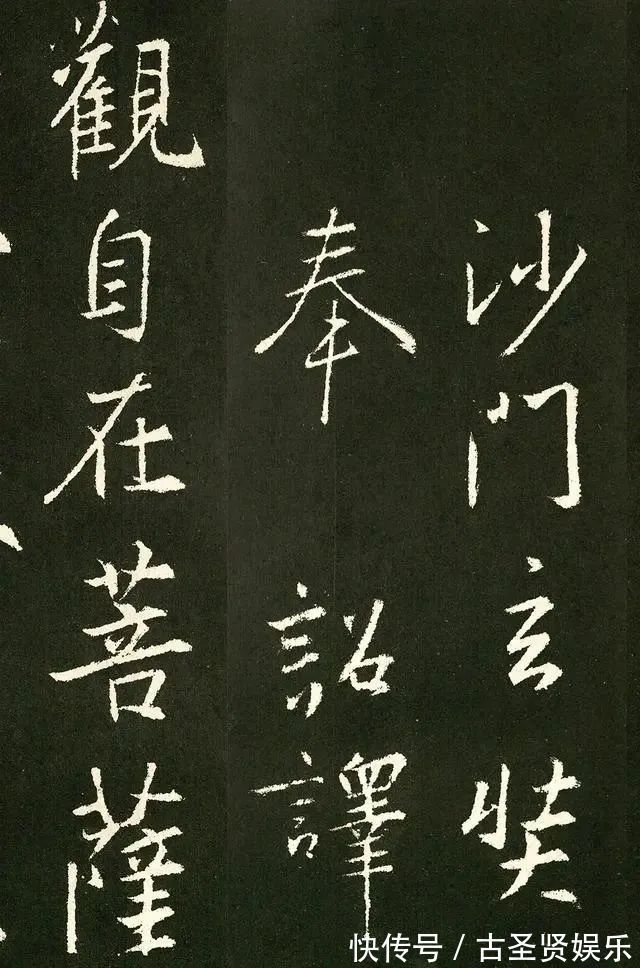 沙門玄奘
奉 詔譯
觀自在菩薩
快传号 / 古圣贤娱乐